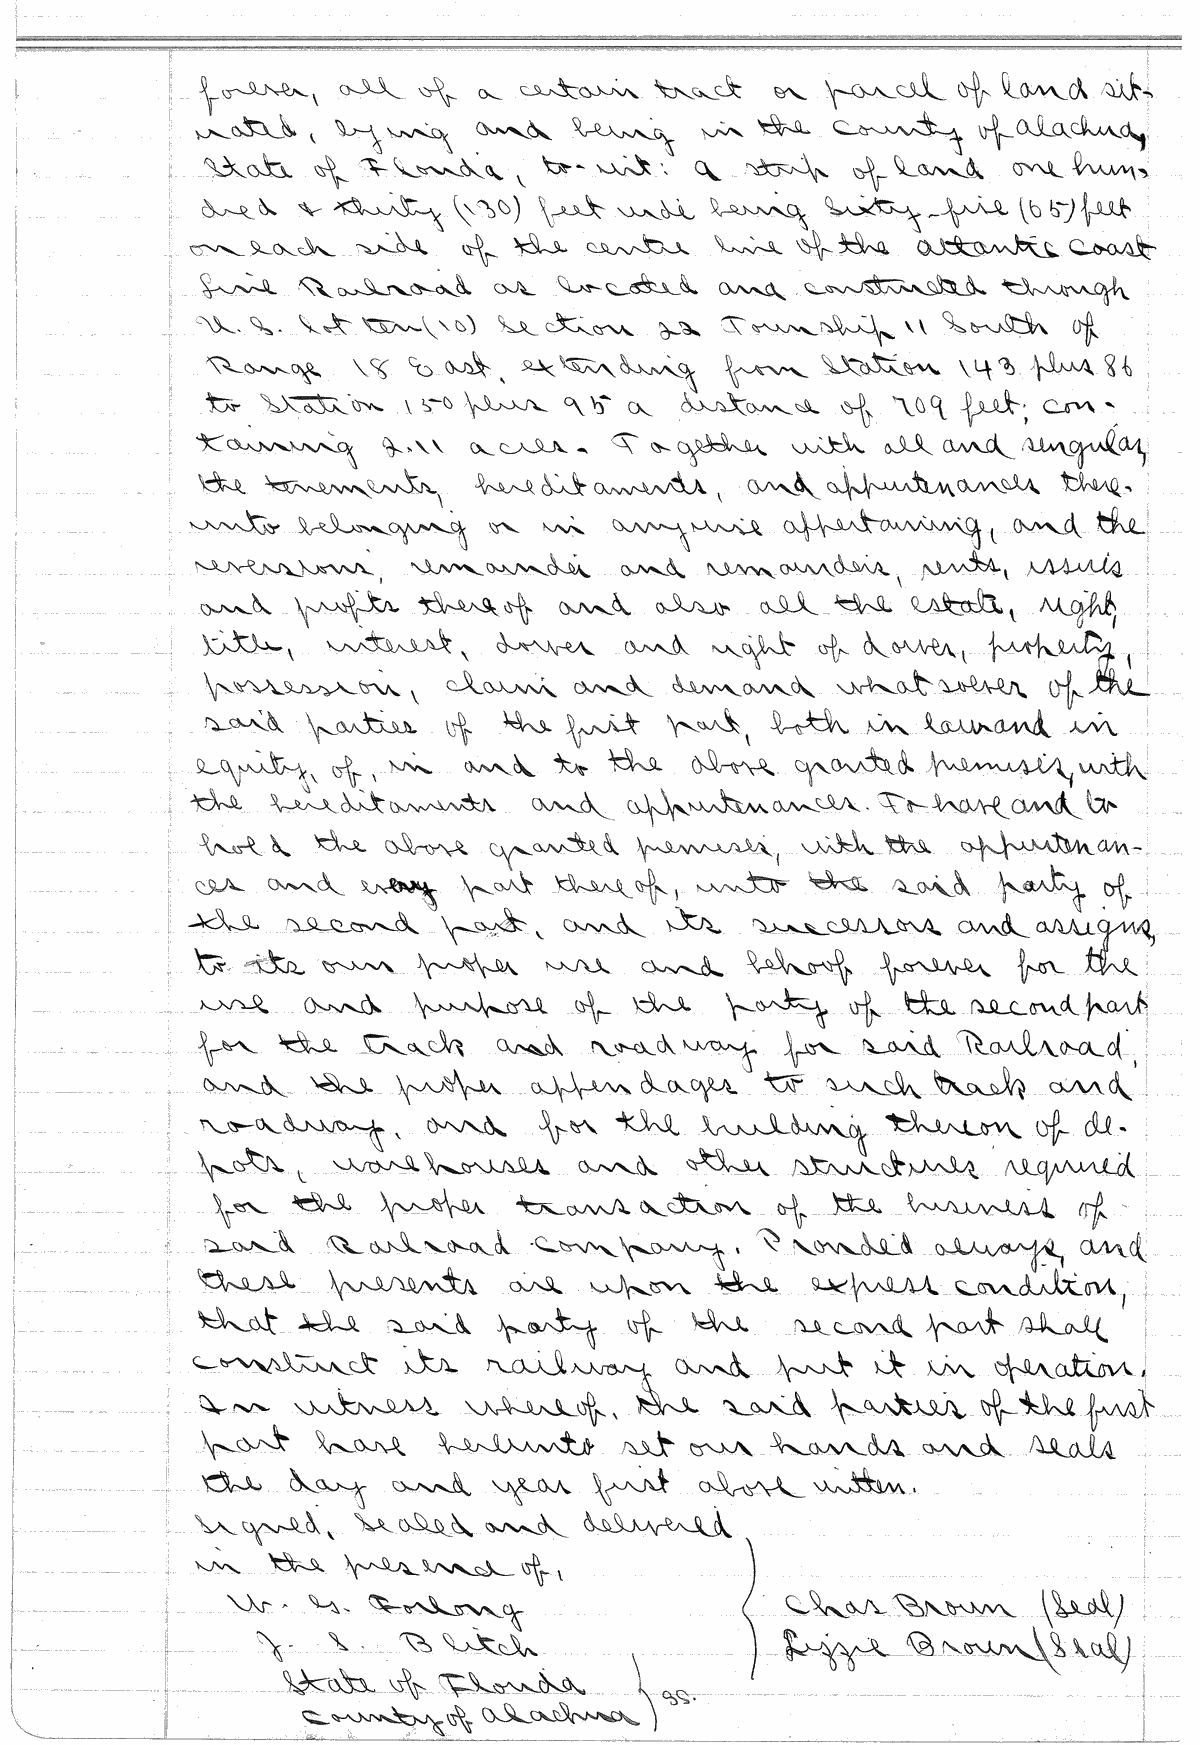 forever, all of a certain tract or parcel of land sit-
uated, lying and being in the county of Alachua,
State of Florida, to-wit: A strip of land one hun-
dred & thirty (130) feet wide being Sixty-five (65) feet
on each side of the centre line of the Atlantic Coast
Line Railroad as located and constructed through
U. S. Lot ten (10) Section 22 Township 11 South of
Range 18 East, extending from Station 143 plus 86
to Station 150 plus 95 a distance of 709 feet; con-
taining 2.11 acres. Together with all and singular,
the tenements, hereditaments, and appurtenances there-
unto belonging or in anywise appertaining, and the
reversions, remainder and remainders, rents, issues
and profits thereof and also all the estate, right,
title, interest, dower and right of dower, property,
possession, claim and demand whatsoever of the
said parties of the first part, both in law and in
equity, of, in and to the above granted premises, with
the hereditaments and appurtenances. To have and to
hold the above granted premises, with the appurtenan-
ces and every part thereof, unto the said party of
the second part, and its successors and assigns,
to its own proper use and behoof forever for the
use and purpose of the party of the second part
for the track and roadway for said Railroad,
and the proper appendages to such track and
roadway, and for the building thereon of de-
pots, warehouses and other structures required
for the proper transaction of the business of
said Railroad Company. Provided always, and
these presents are upon the express condition,
that the said party of the second part shall
construct its railway and put it in operation.
In witness whereof, the said parties of the first
part have hereunto set our hands and seals
the day and year first above written.
Signed, Sealed and delivered
in the presence of,
W. G. Forlong
Chas Brown (Seal)
J. S. Blitch
Lizzie Brown (Seal)
State of Florida
County of Alachua ss.